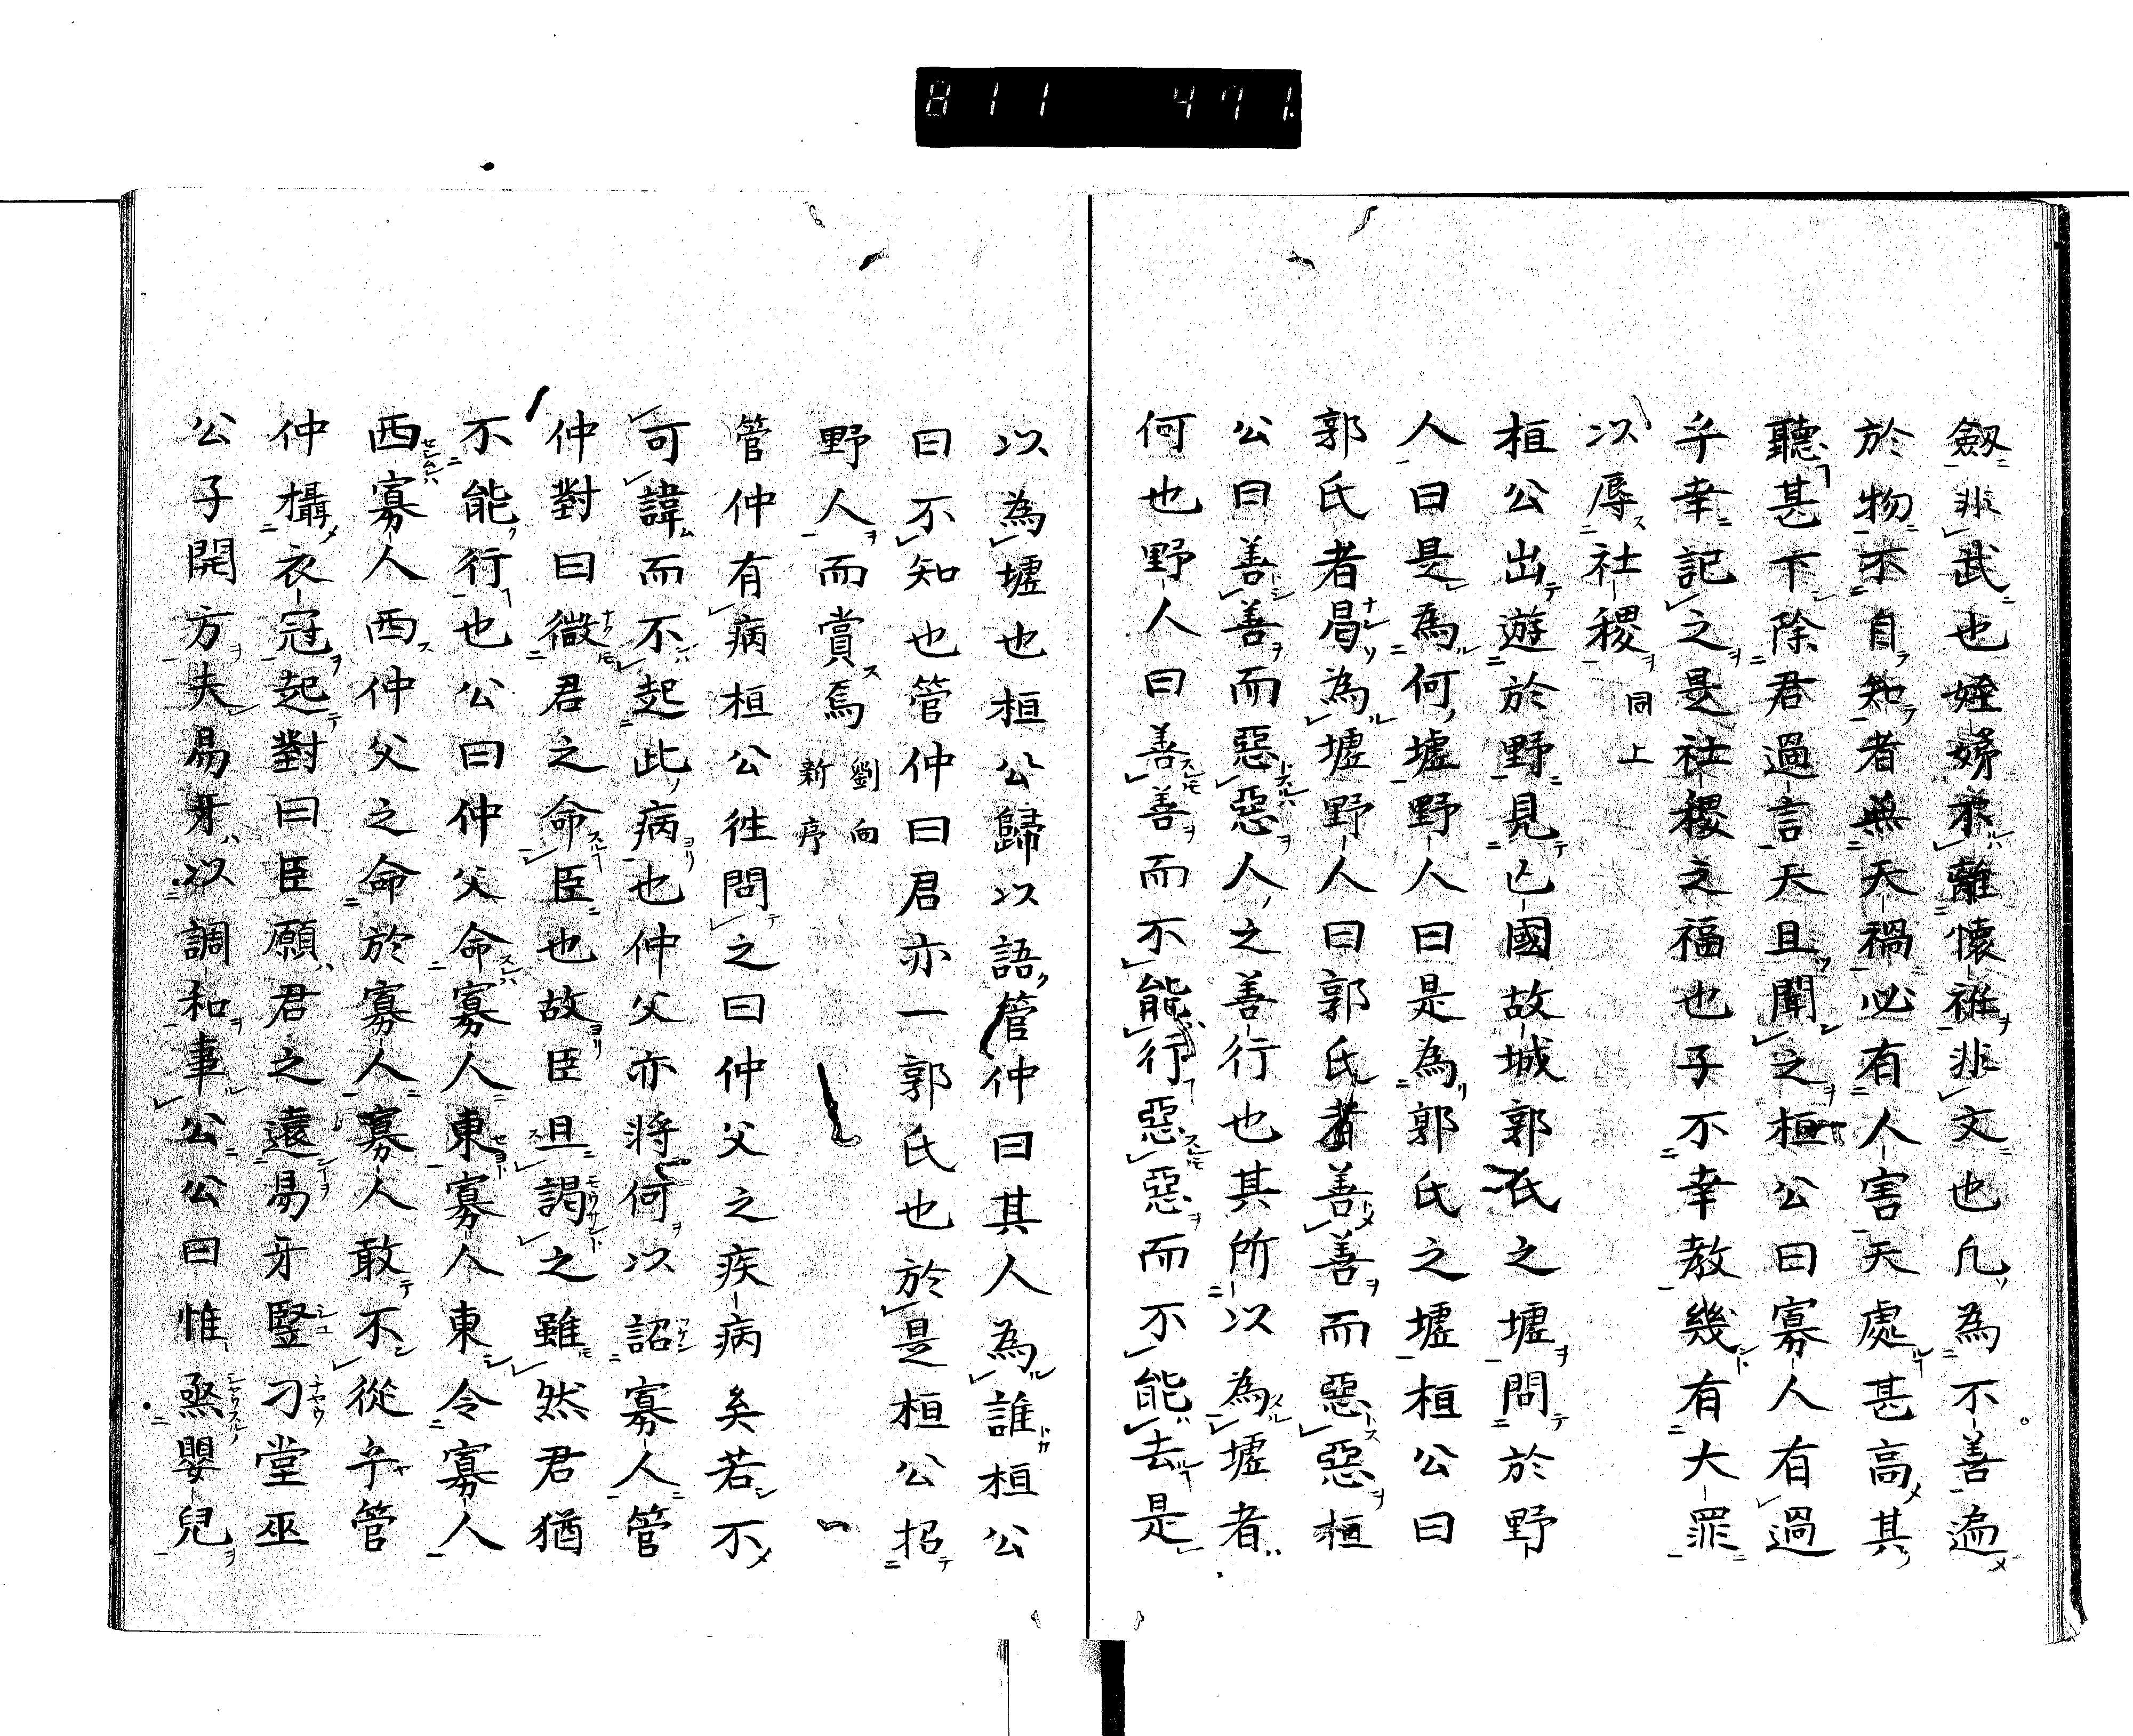 811 471.
劔非武也姪娣不離懷衽非文也凡為不善遍
於物不自知者無天禍必有人害天處甚高其
聽甚下除君過言天且聞之桓公曰寡人有過
乎幸記之是社稷之福也子不幸教幾有大罪
以辱社稷 同上
桓公出遊於野見亡國故城郭氏之墟問於野
人曰是為何墟野人曰是為郭氏之墟桓公曰
郭氏者曷為墟野人曰郭氏者善善而惡惡桓
公曰善善而惡惡人之善行也其所以為墟者
何也野人曰善善而不能行惡惡而不能去是
以為墟也桓公歸以語管仲曰其人為誰桓公
曰不知也管仲曰君亦一郭氏也於是桓公招
野人而賞焉 劉向新序
管仲有病桓公往問之曰仲父之疾病矣若不
可諱而不起此病也仲父亦將何以詔寡人管
仲對曰微君之命臣也故臣且謁之雖然君猶
不能行也公曰仲父命寡人東寡人東令寡人
西寡人西仲父之命於寡人寡人敢不從乎管
仲攝衣冠起對曰臣願君之遠易牙豎刁堂巫
公子開方夫易牙以調和事公公曰惟烝嬰兒